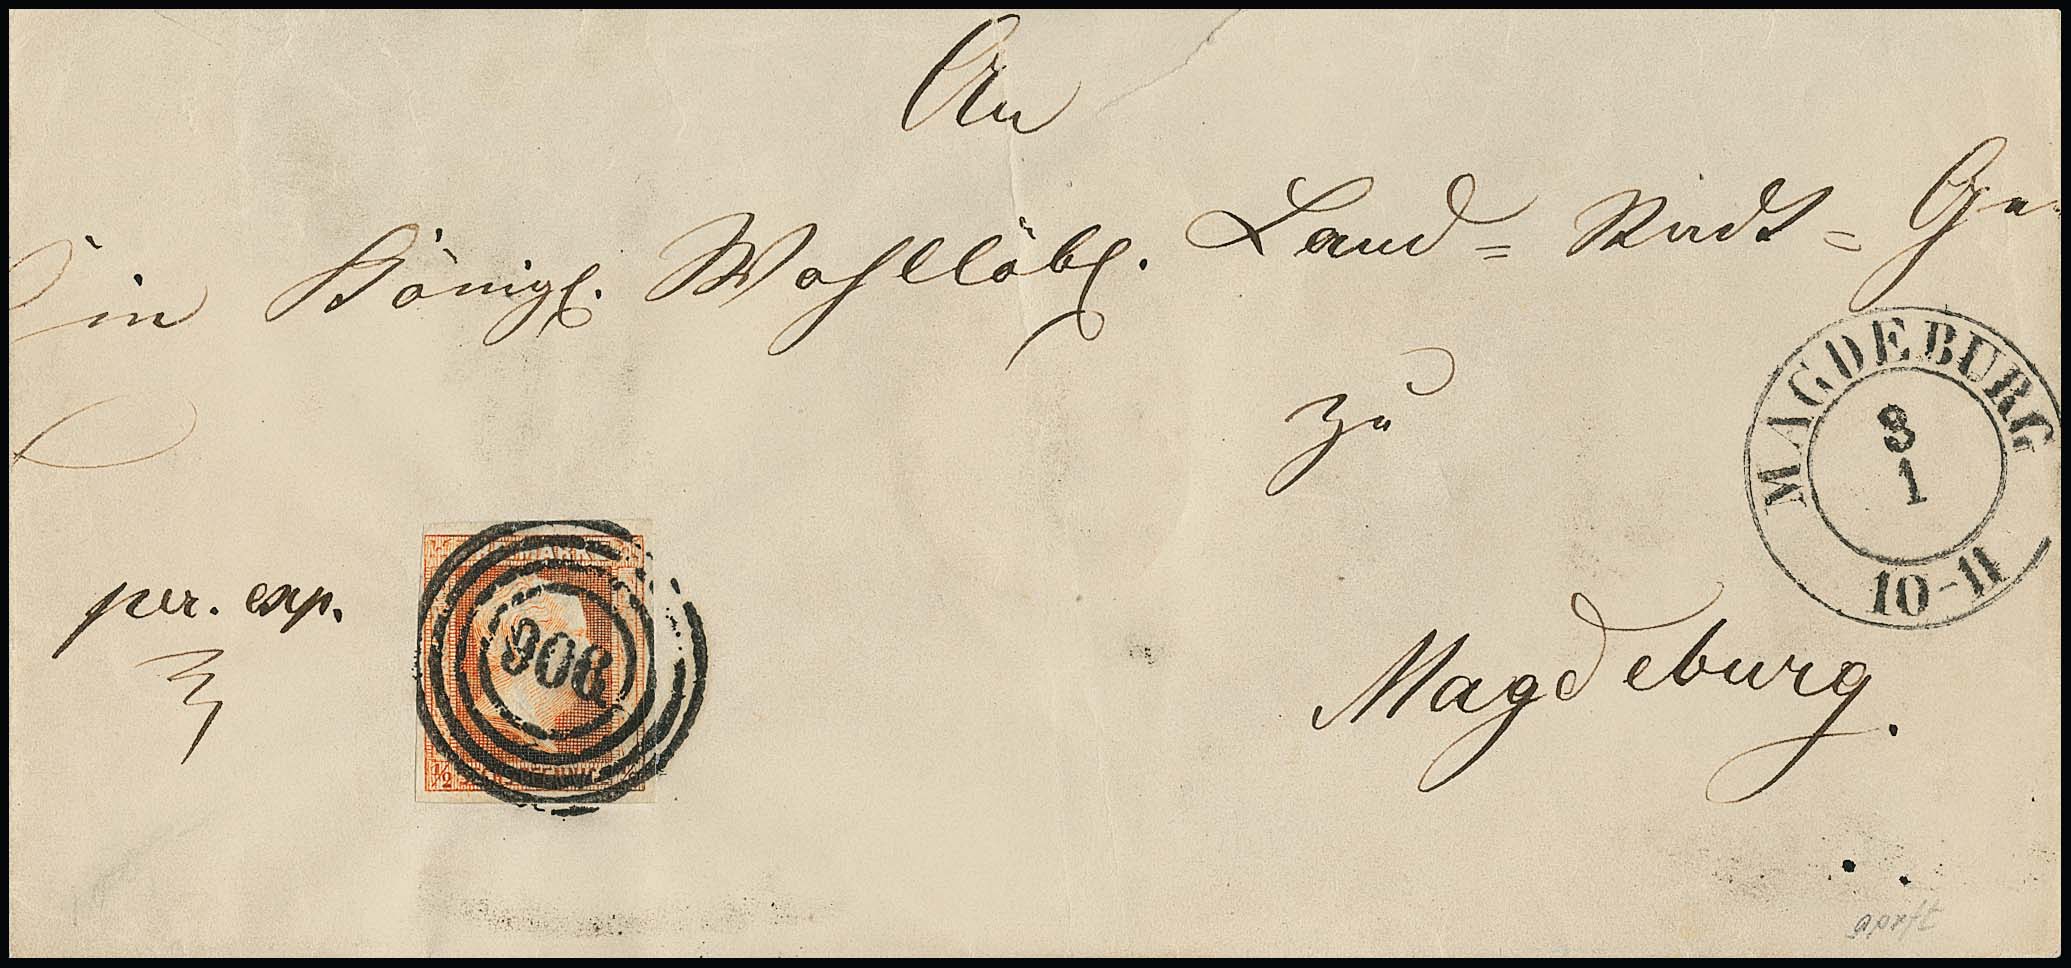 An
Ein Königl. Wohllöbl. Land = Stadt = Ge
zu
Magdeburg.
per. exp.
MAGDEBURG
3
1
10-11
908
½
gprft